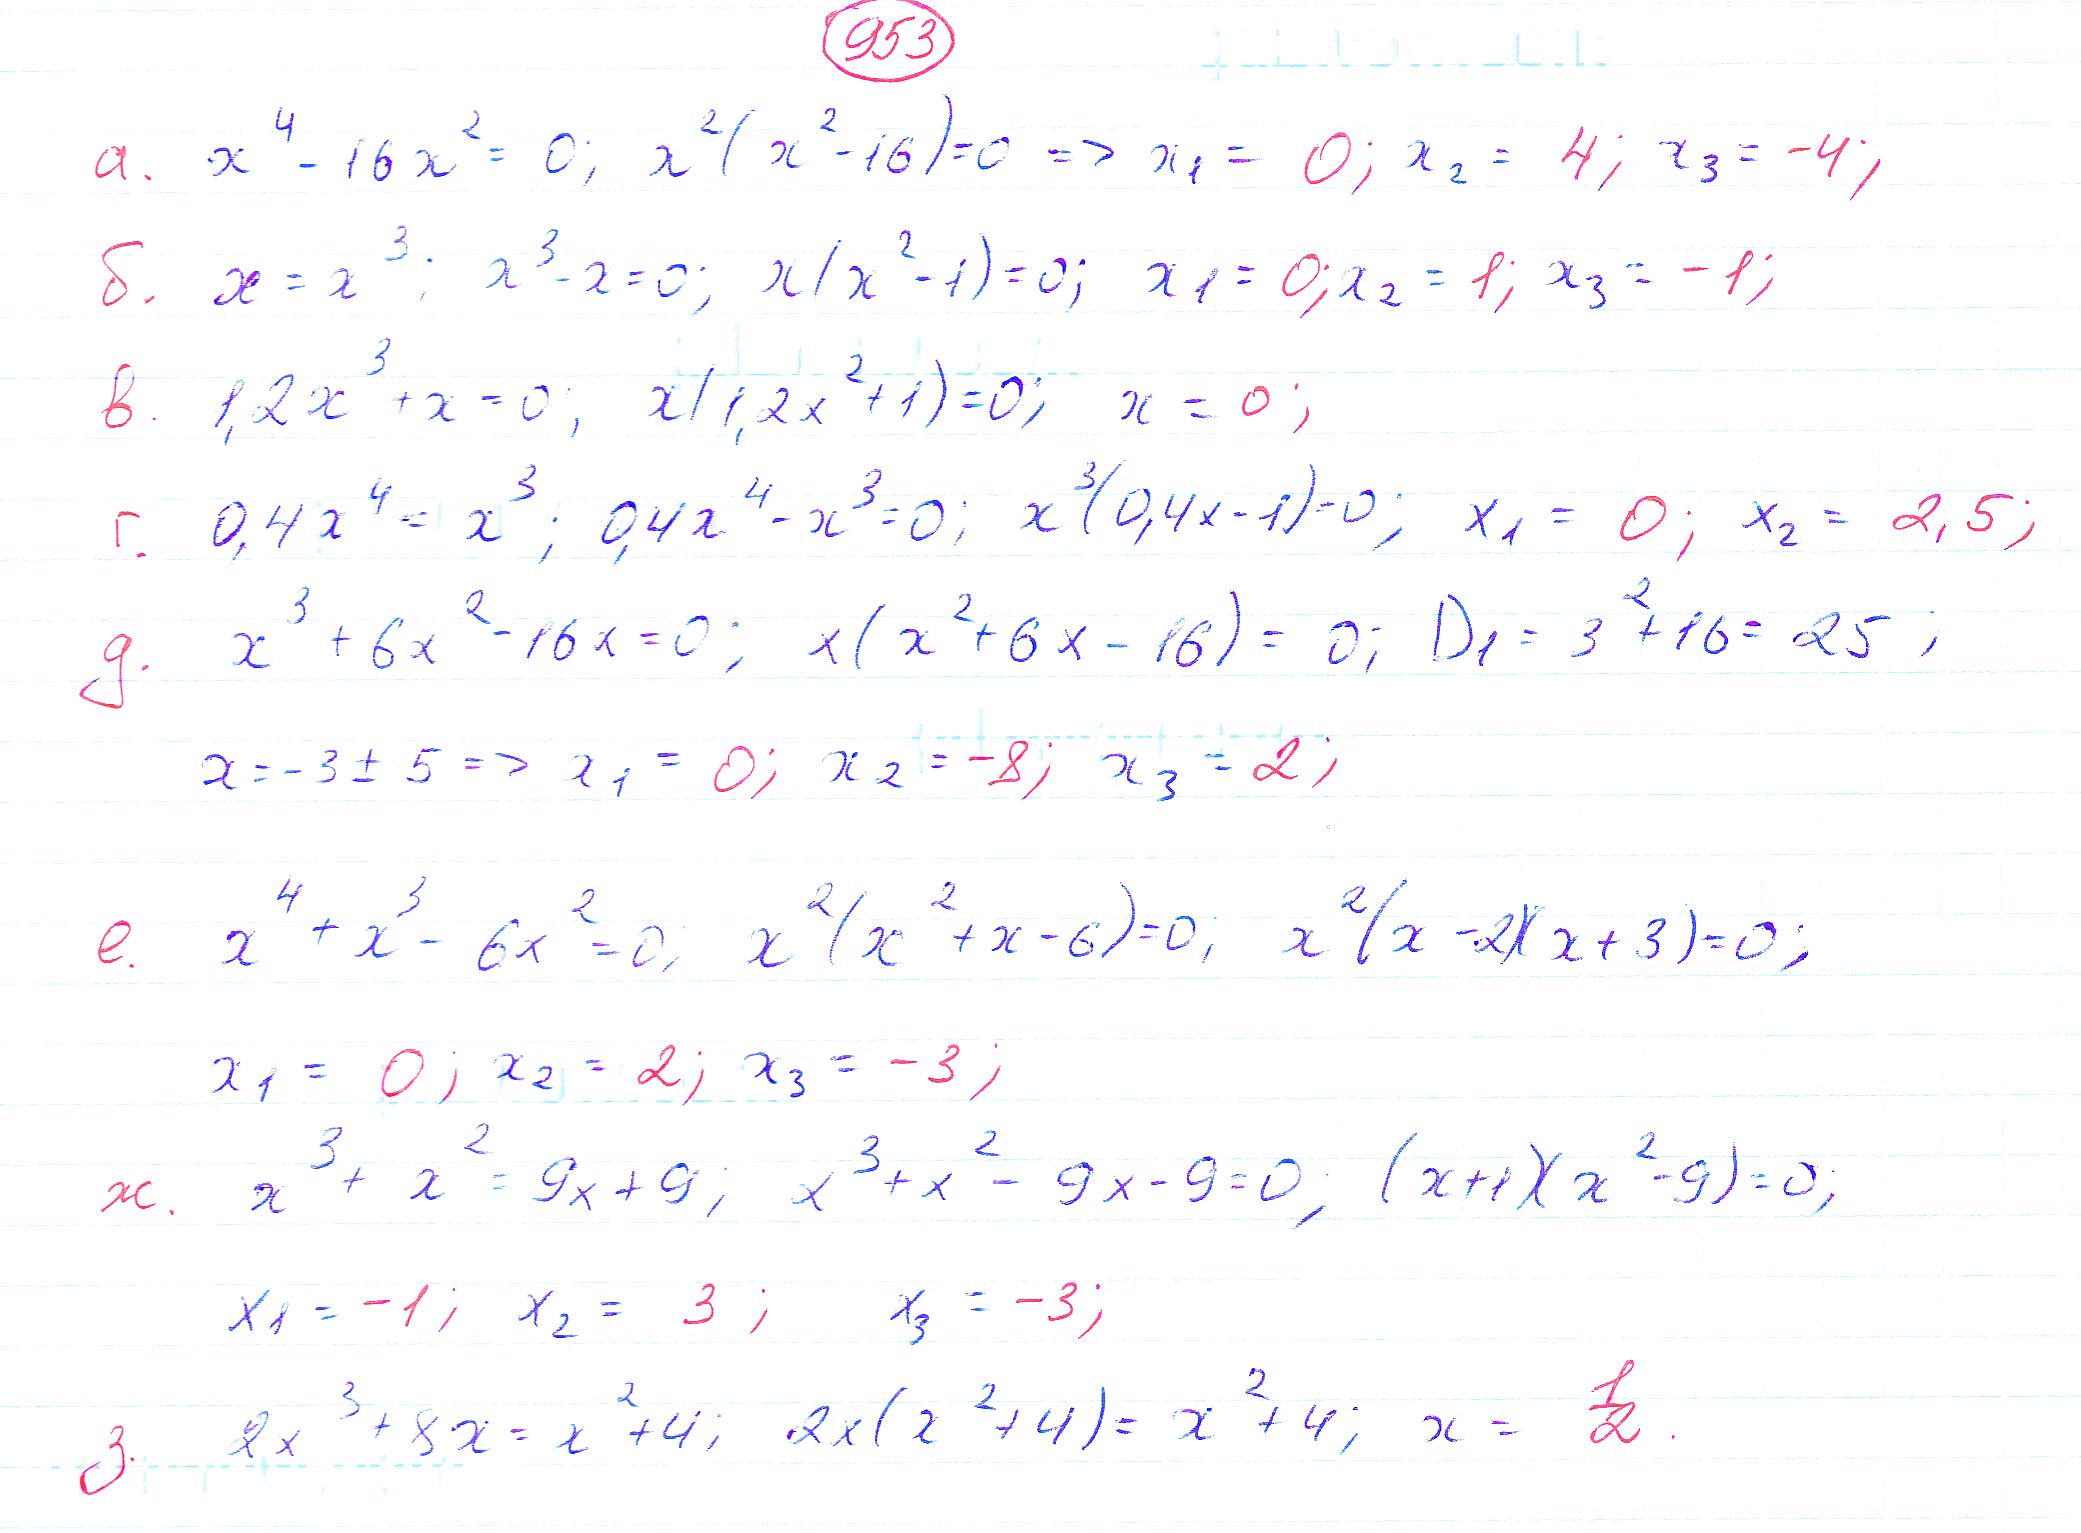 953
а. x⁴ - 16x² = 0; x²(x² - 16) = 0 => x₁ = 0; x₂ = 4; x₃ = -4;
б. x = x³; x³ - x = 0; x(x² - 1) = 0; x₁ = 0; x₂ = 1; x₃ = -1;
в. 1,2x³ + x = 0; x(1,2x² + 1) = 0; x = 0;
г. 0,4x⁴ = x³; 0,4x⁴ - x³ = 0; x³(0,4x - 1) = 0; x₁ = 0; x₂ = 2,5;
д. x³ + 6x² - 16x = 0; x(x² + 6x - 16) = 0; D₁ = 3² + 16 = 25;
x = -3 ± 5 => x₁ = 0; x₂ = -8; x₃ = 2;
е. x⁴ + x³ - 6x² = 0; x²(x² + x - 6) = 0; x²(x - 2)(x + 3) = 0;
x₁ = 0; x₂ = 2; x₃ = -3;
ж. x³ + x² = 9x + 9; x³ + x² - 9x - 9 = 0; (x + 1)(x² - 9) = 0;
x₁ = -1; x₂ = 3; x₃ = -3;
з. 2x³ + 8x = x² + 4; 2x(x² + 4) = x² + 4; x = 1/2.